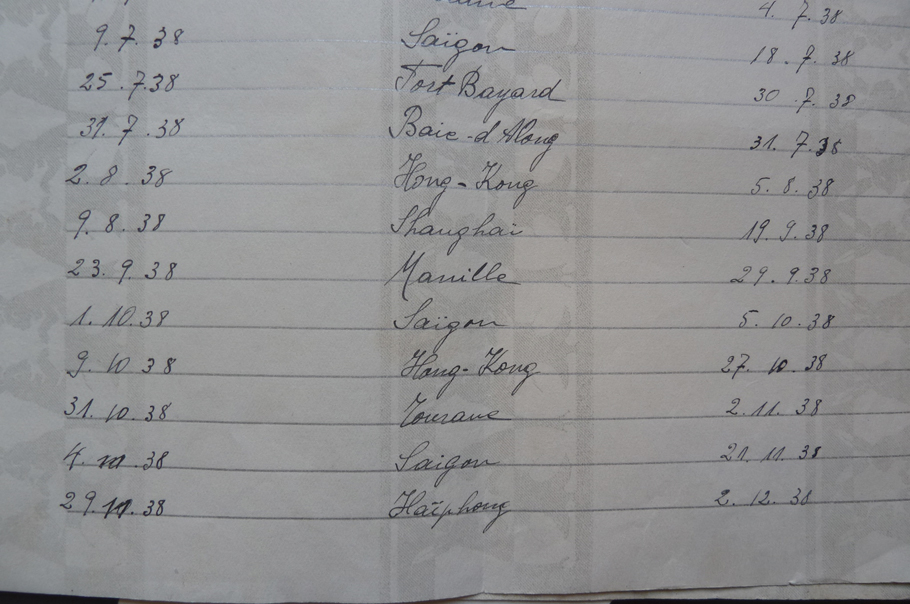 4. 7. 38
9. 7. 38 Saïgon 18. 7. 38
25. 7. 38 Fort Bayard 30. 7. 38
31. 7. 38 Baie-d'Along 31. 7. 38
2. 8. 38 Hong-Kong 5. 8. 38
9. 8. 38 Shanghai 19. 9. 38
23. 9. 38 Manille 29. 9. 38
1. 10. 38 Saïgon 5. 10. 38
9. 10 38 Hong-Kong 27. 10. 38
31. 10. 38 Tourane 2. 11. 38
4. 11. 38 Saigon 21. 11. 38
29. 11. 38 Haïphong 2. 12. 38